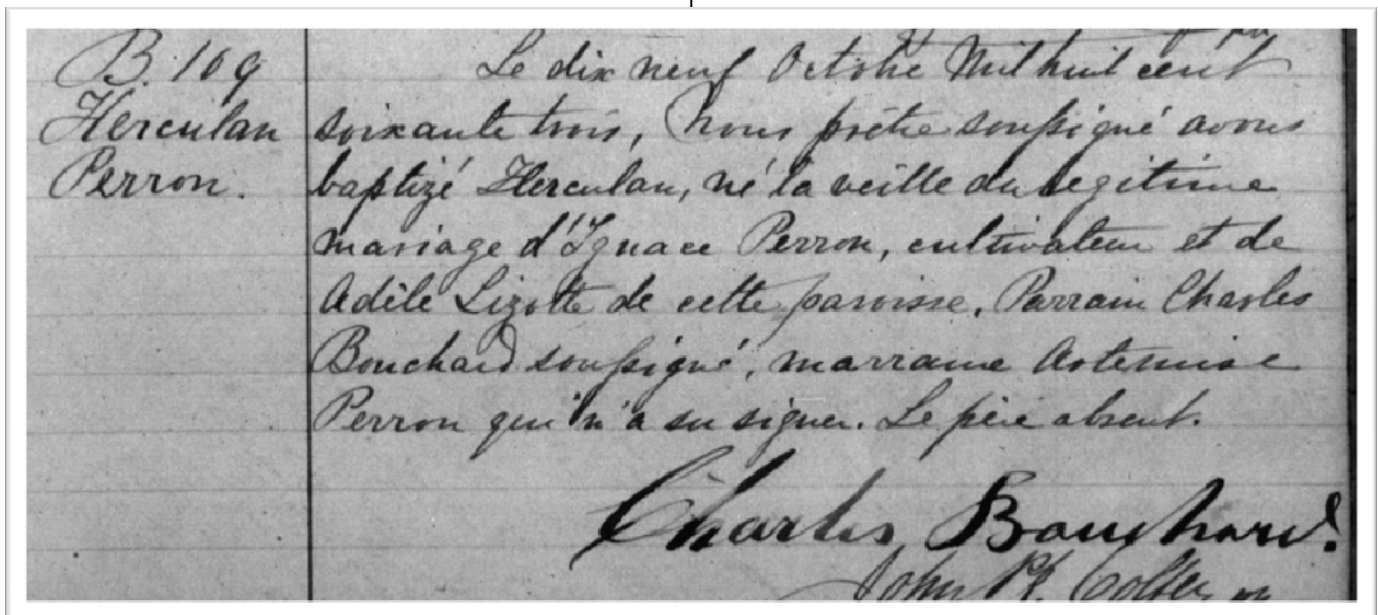 B. 109
Herculan
Perron.
Le dix neuf Octobre Mil huit cent
soixante trois, Nous prêtre soussigné avons
baptizé Herculan, né la veille du legitime
mariage d'Ignace Perron, cultivateur et de
Adèle Lizotte de cette paroisse. Parrain Charles
Bouchard soussigné, marraine Artemise
Perron qui n'a su signer. Le père absent.
Charles Bouchard.
John